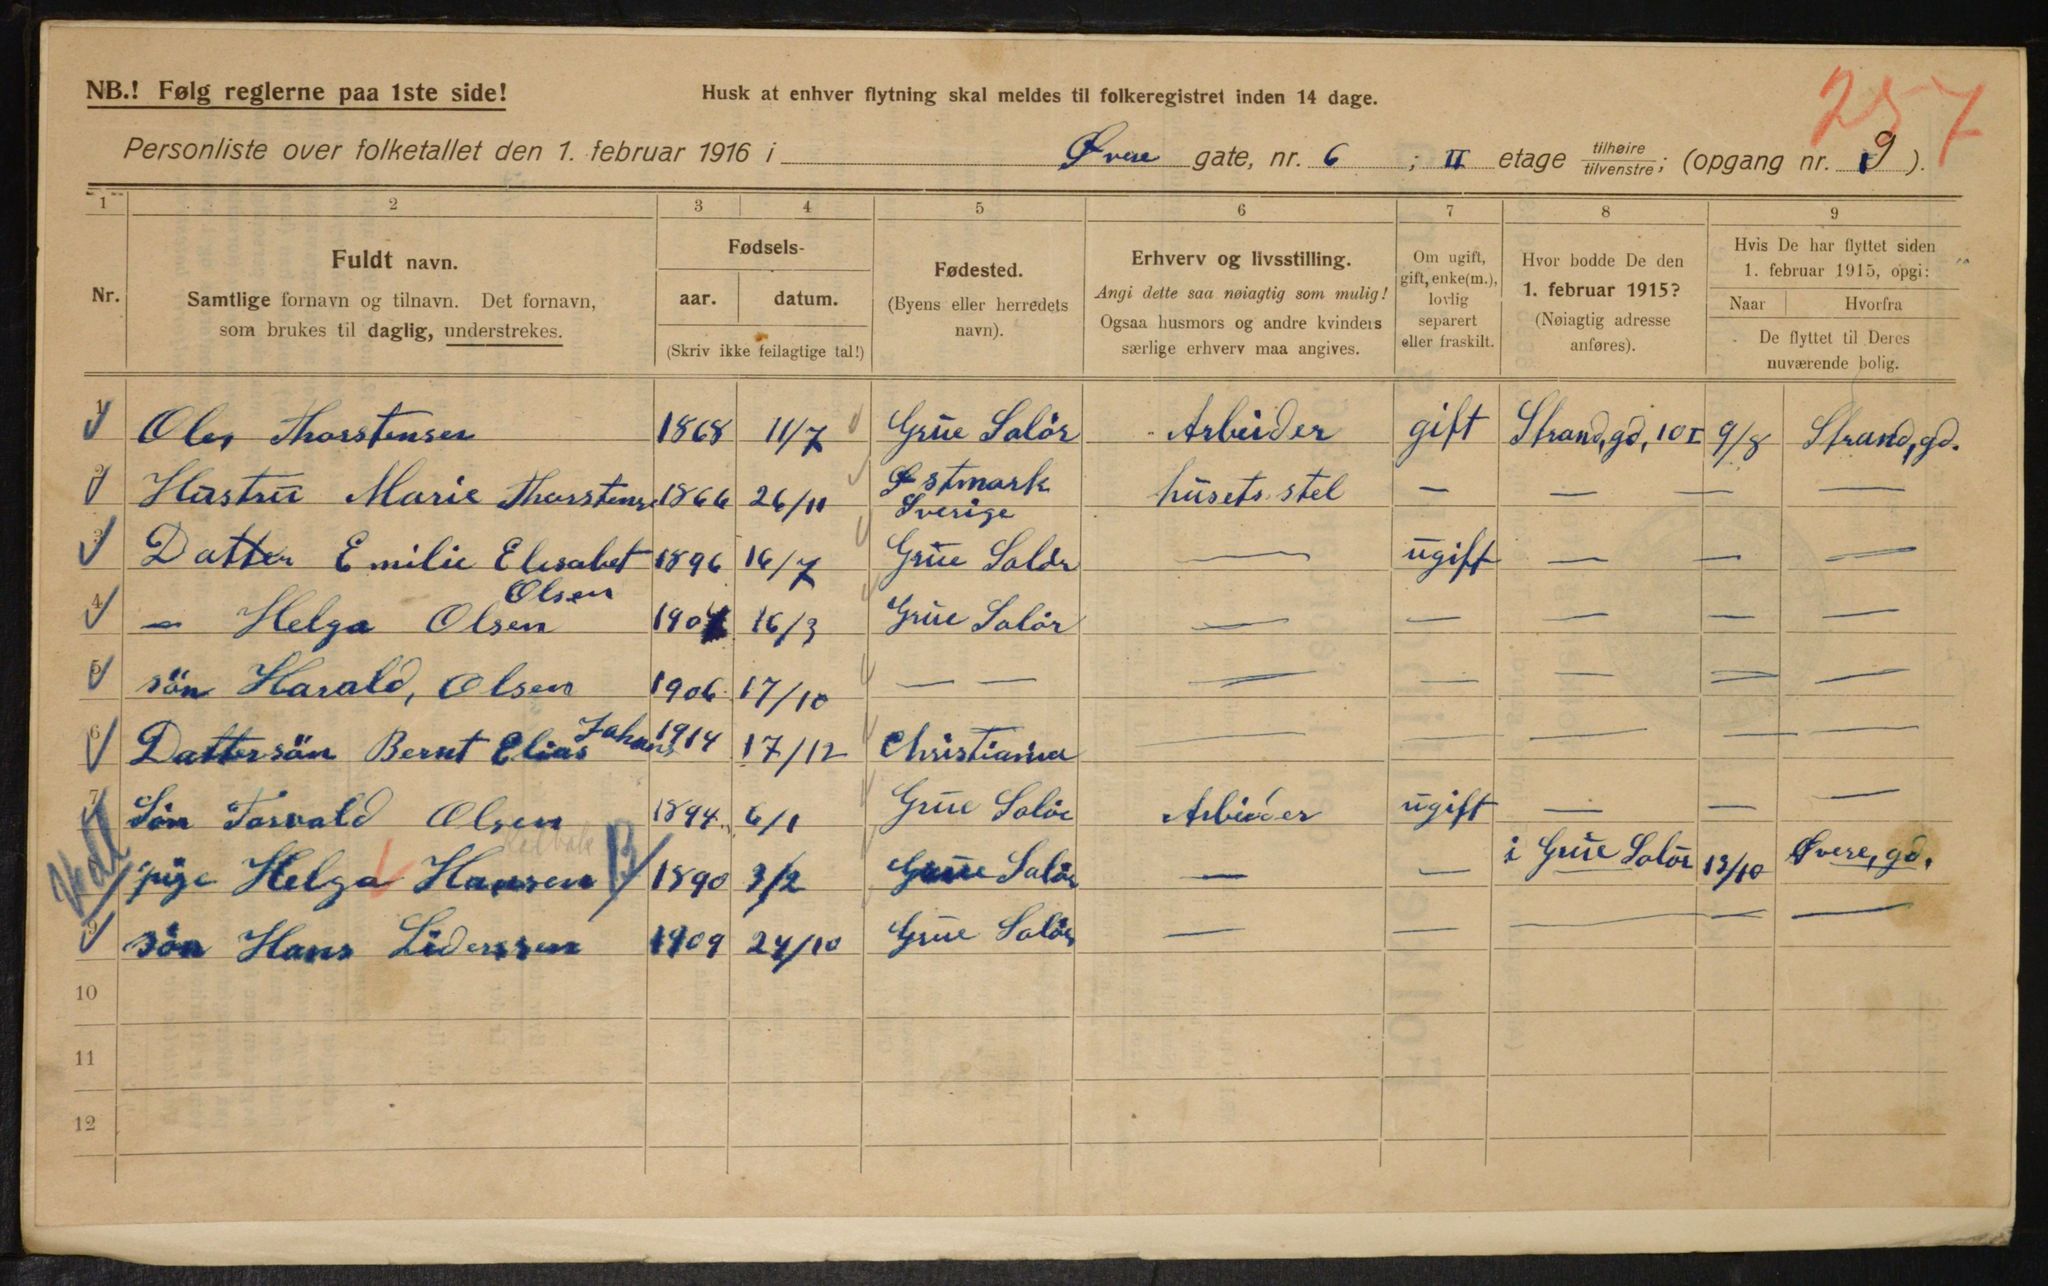 NB.! Følg reglerne paa 1ste side!
Husk at enhver flytning skal meldes til folkeregistret inden 14 dage.
257
Personliste over folketallet den 1. februar 1916 i Øvere gate, nr. 6 ; II etage tilhøire / tilvenstre; (opgang nr. 9).
1 2 3 4 5 6 7 8 9
Nr.
Fuldt navn.
Samtlige fornavn og tilnavn. Det fornavn,
som brukes til daglig, understrekes.
Fødsels-
aar. datum.
(Skriv ikke feilagtige tal!)
Fødested.
(Byens eller herredets
navn).
Erhverv og livsstilling.
Angi dette saa nøiagtig som mulig!
Ogsaa husmors og andre kvinders
særlige erhverv maa angives.
Om ugift,
gift, enke(m.),
lovlig
separert
eller fraskilt.
Hvor bodde De den
1. februar 1915?
(Nøiagtig adresse
anføres).
Hvis De har flyttet siden
1. februar 1915, opgi:
Naar Hvorfra
De flyttet til Deres
nuværende bolig.
1 Ole Thorstensen 1868 11/7 Grue Solör Arbeider gift Strand,gd, 10 I 9/8 Strand,gd.
2 Hustru Marie Thorstense 1866 26/11 Østmark Sverige husets stel — — — —
3 Datter Emilie Elesabet Olsen 1896 16/7 Grue Solör — ugift — — —
4 — Helga Olsen 1904 16/3 Grue Solör — — — — —
5 sön Harald, Olsen 1906 17/10 — — — — — — —
6 Dattersön Bernt Elias Johans 1914 17/12 Christiania — — — — —
7 Sön Torvald Olsen 1894 6/1 Grue Solör Arbeider ugift — — —
pige Helga Hansen 1890 3/2 Grue Solör — — i Grue Solör 13/10 Øvere, gd.
9 sön Hans Liderssen 1909 24/10 Grue Solör — — — — —
10
11
12